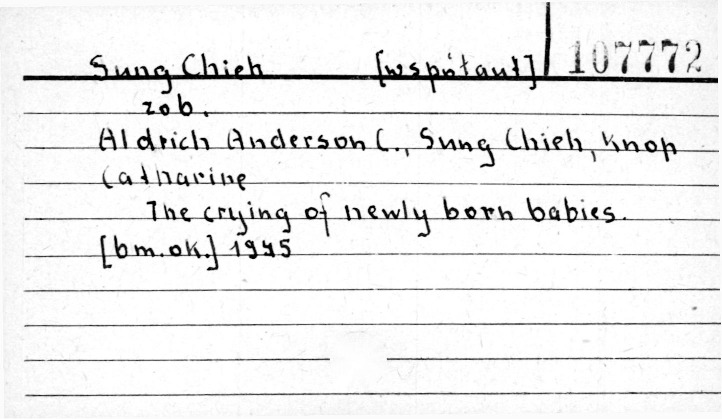 Sung Chieh [współaut] 107772
zob.
Aldrich Anderson C., Sung Chieh, Knop
Catharine
The crying of newly born babies.
[bm.ok.] 1945